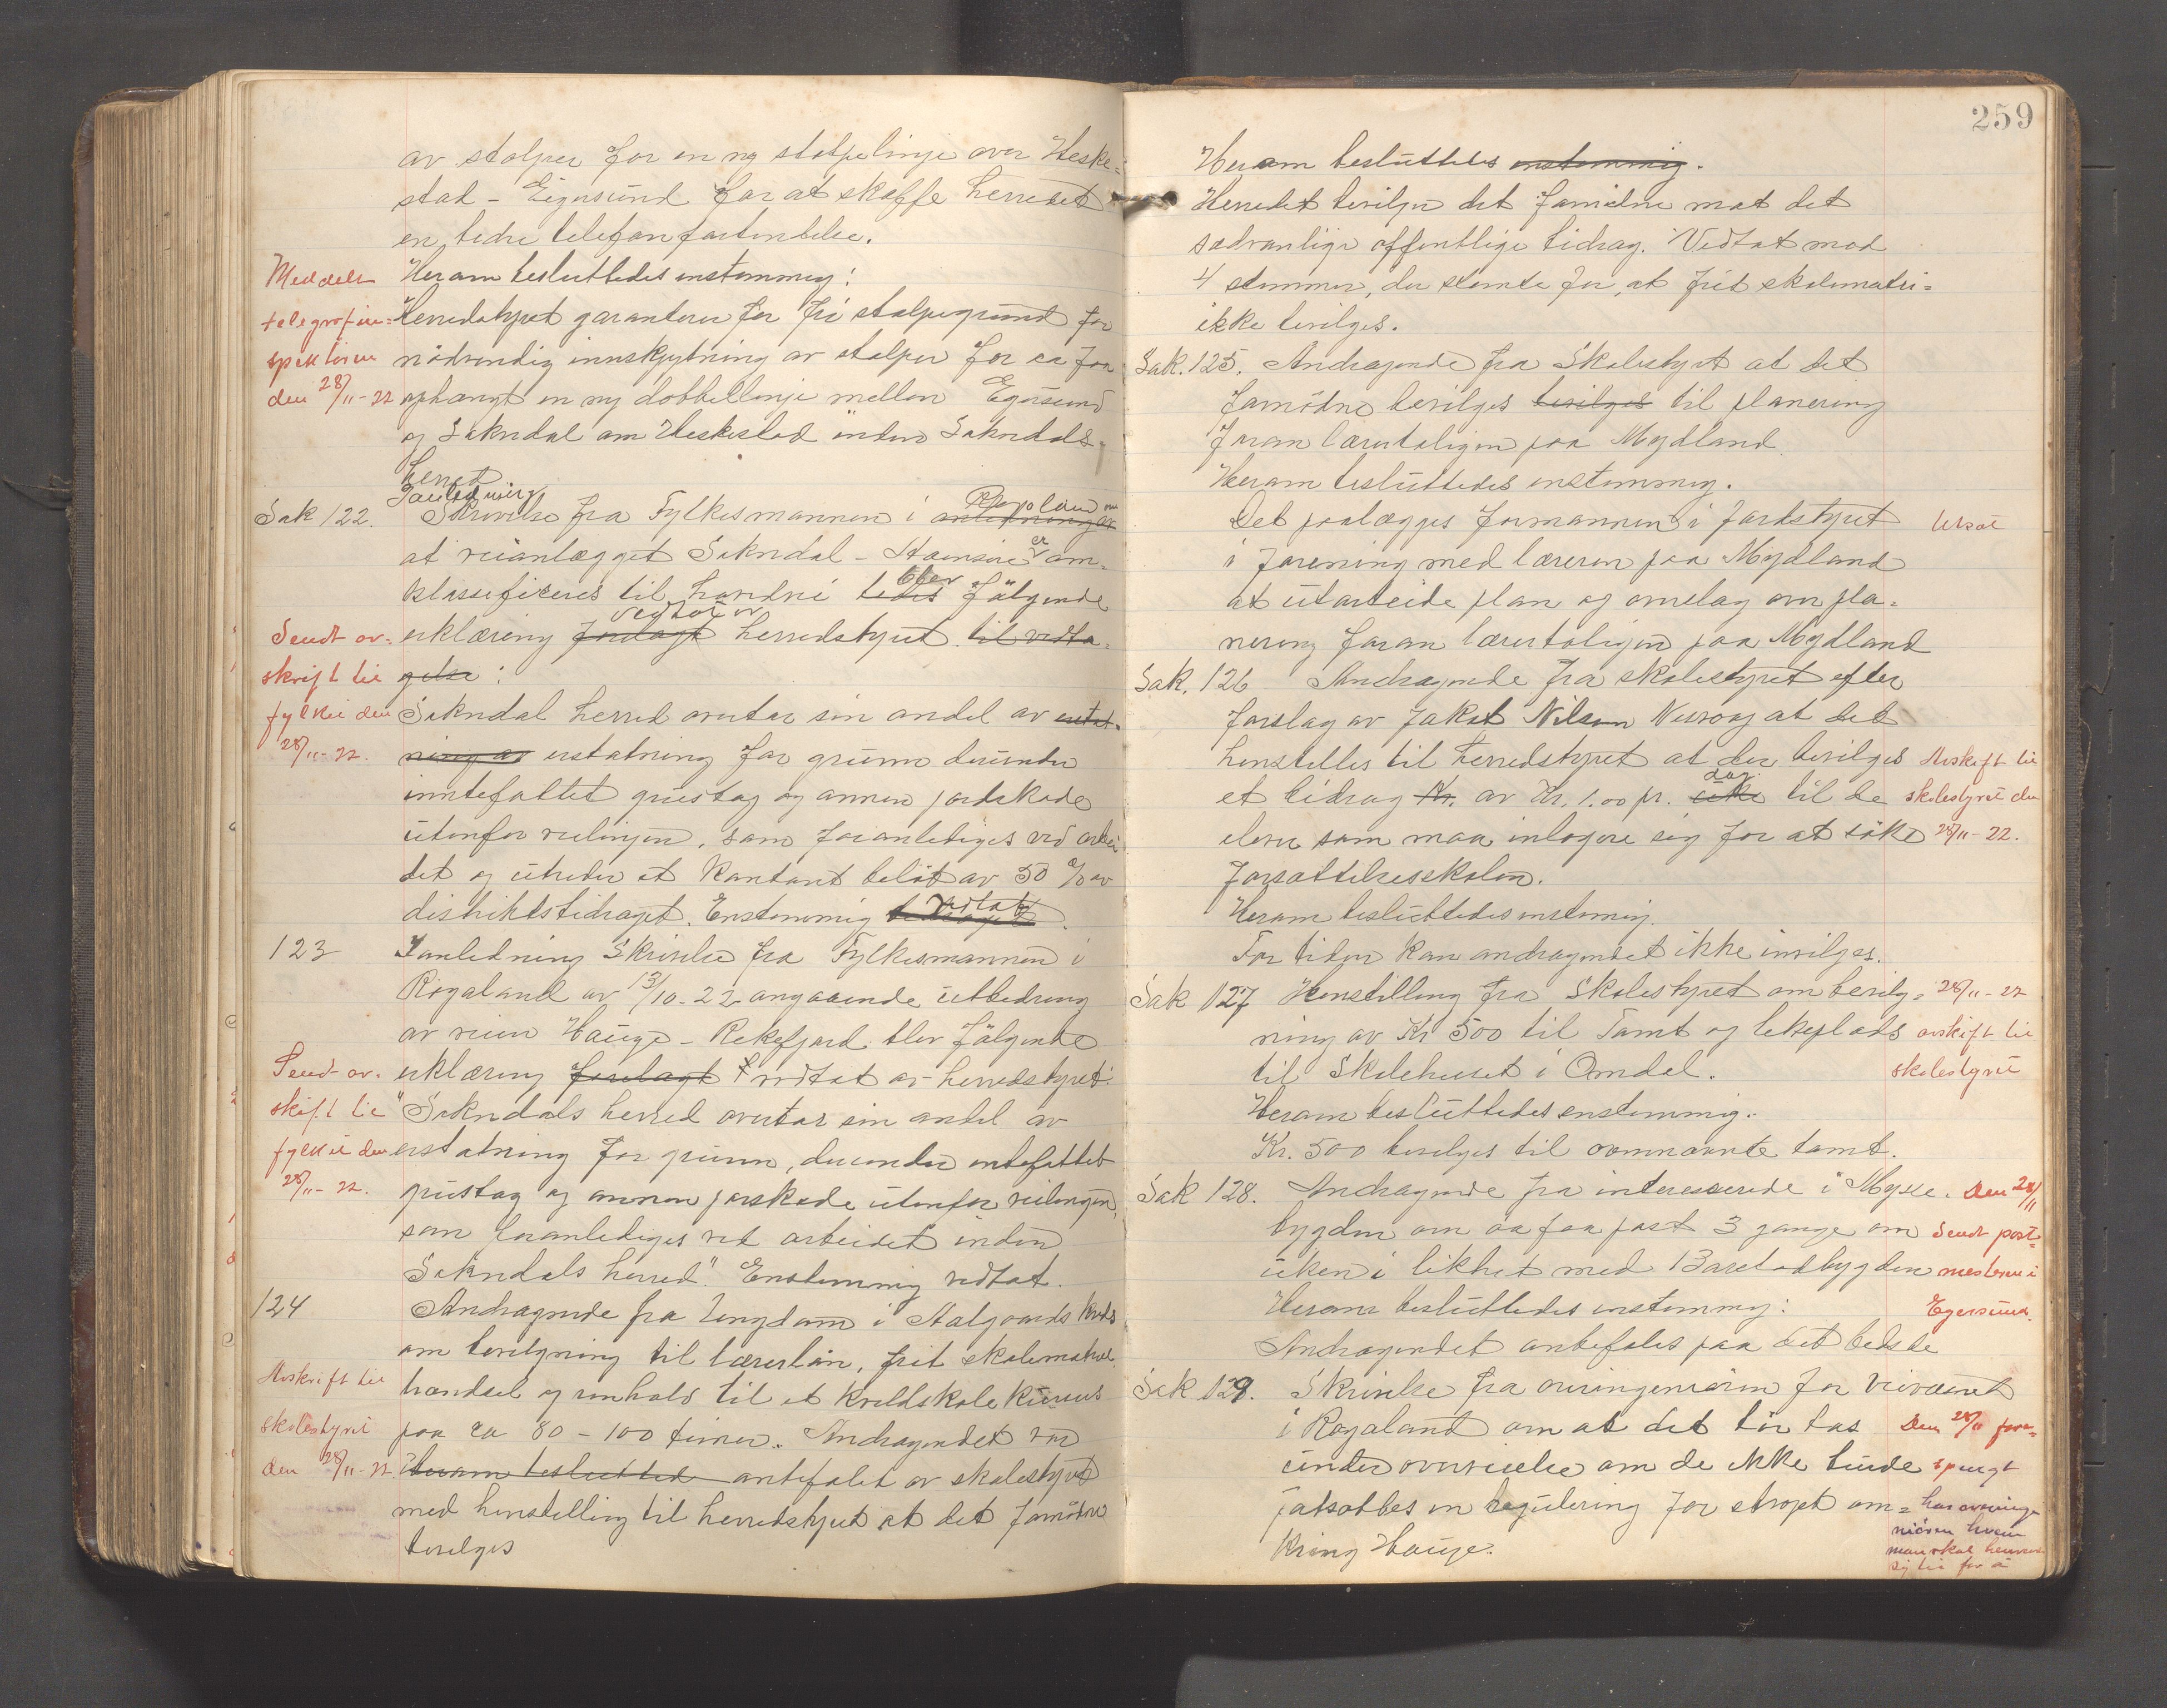 av stolper for en ny stolpelinje over Heske=
stad - Eigersund for at skaffe herredet
en bedre telefonforbindelse.
Meddelt Herom besluttedes enstemmig:
telegrafin= Herredstyret garanterer for fri stolpegrund for
spektören nödvendig innskjytning av stolper for aa faa
den 28/11-22 ophængt en ny dobbellinje mellem Egersund
og Sokndal om Heskestad inden Sokndals
herred
Sak 122. Ianledning Skrivelse fra Fylkesmannen i Rogaland om
at veianlægget Sokndal - Aamsire er om=
klassificeres til hovedvei blev följende
Sendt av= erklæring vedtat av herredstyret til vedta=
skrift til gelse:
fylket den Sokndal herred overtar sin andel av erstat=
28/11-22. ning av erstatning for grunn derunder
innbefattet grustag og annen jordskade
utenfor veilinjen, som foranlediges ved arbei
det og utreder et kontant belöb av 50 % av
distriktsbidraget. Enstemmig vedtat.
123 Ianledning Skrivelse fra Fylkesmannen i
Rogaland av 13/10-22 angaaende utbedring
av veien Hauge - Rekefjord blev fölgende
Sendt av= erklæring forelagt vedtat av herredstyret:
skrift til "Sokndals herred overtar sin andel av
fylket den erstatning for grunn, derunder inbefattet
28/11-22. grustag og annen jorskade utenfor veilinjen,
som foranlediges ved arbeidet inden
Sokndals herred". Enstemmig vedtat.
124 Andragende fra Ungdom i Aalgaards kreds
om bevilgning til lærerlön, frit skolemateriel
Avskrift til brændsel og renhold til et kveldskole kursus
skolestyret paa ca 80 - 100 timer. Andragendet var
den 28/11-22 Herom beslutted anbefalet av skolestyret
med henstilling til herredstyret at det fornödne
bevilges
259
Herom besluttedes enstemmig.
Herredet bevilger det fornödne mot det
sedvanlige offentlige bidrag. Vedtat mod
4 stemmer, der stemte for, at frit skolemateri=
ikke bevilges.
Sak. 125. Andragende fra Skolestyret at det
fornödne bevilges bevilges til planering
foran lærerboligen paa Mydland
Herom besluttedes enstemmig.
Det paalægges formannen i jordstyret Utsat
i forening med læreren paa Mydland
at utarbeide plan og overslag over pla=
nering foran lærerboligen paa Mydland
Sak. 126 Andragende fra skolestyret efter
forslag av Jakob Nilsen at det
henstilles til herredstyret at der bevilges Avskrift til
et bidrag Kr. av Kr. 1.00 pr. uke dag til de skolestyret den
elever som maa inlogere sig for at söke 28/11-22.
Forsættelsesskolen.
Herom besluttedes enstemmig.
For tiden kan andragendet ikke invilges.
Sak 127 Henstilling fra Skolestyret om bevilg= 28/11-22
ning av Kr 500 til Tomt og lekeplads avskrift til
til Skolehuset i Omdal. skolestyret
Herom besluttedes enstemmig.
Kr. 500 bevilges til ovennævnte tomt.
Sak 128. Andragende fra interesserede i Mysse= Den 28/11
bygden om aa faa post 3 gange om Sendt post=
uken i likhet med Barstadbygden mesteren i
Herom besluttedes enstemmig: Egersund.
Andragendet anbefales paa det bedste
Sak 129. Skrivelse fra overingeniören for veivæsenet
i Rogaland om at det bör tas Den 28/11 fore=
under overveielse om de ikke burde spurgt
fatsættes en regulering for ströket om= hos overinge
kring Hauge. niören hvem
man skal henvende
sig til for å